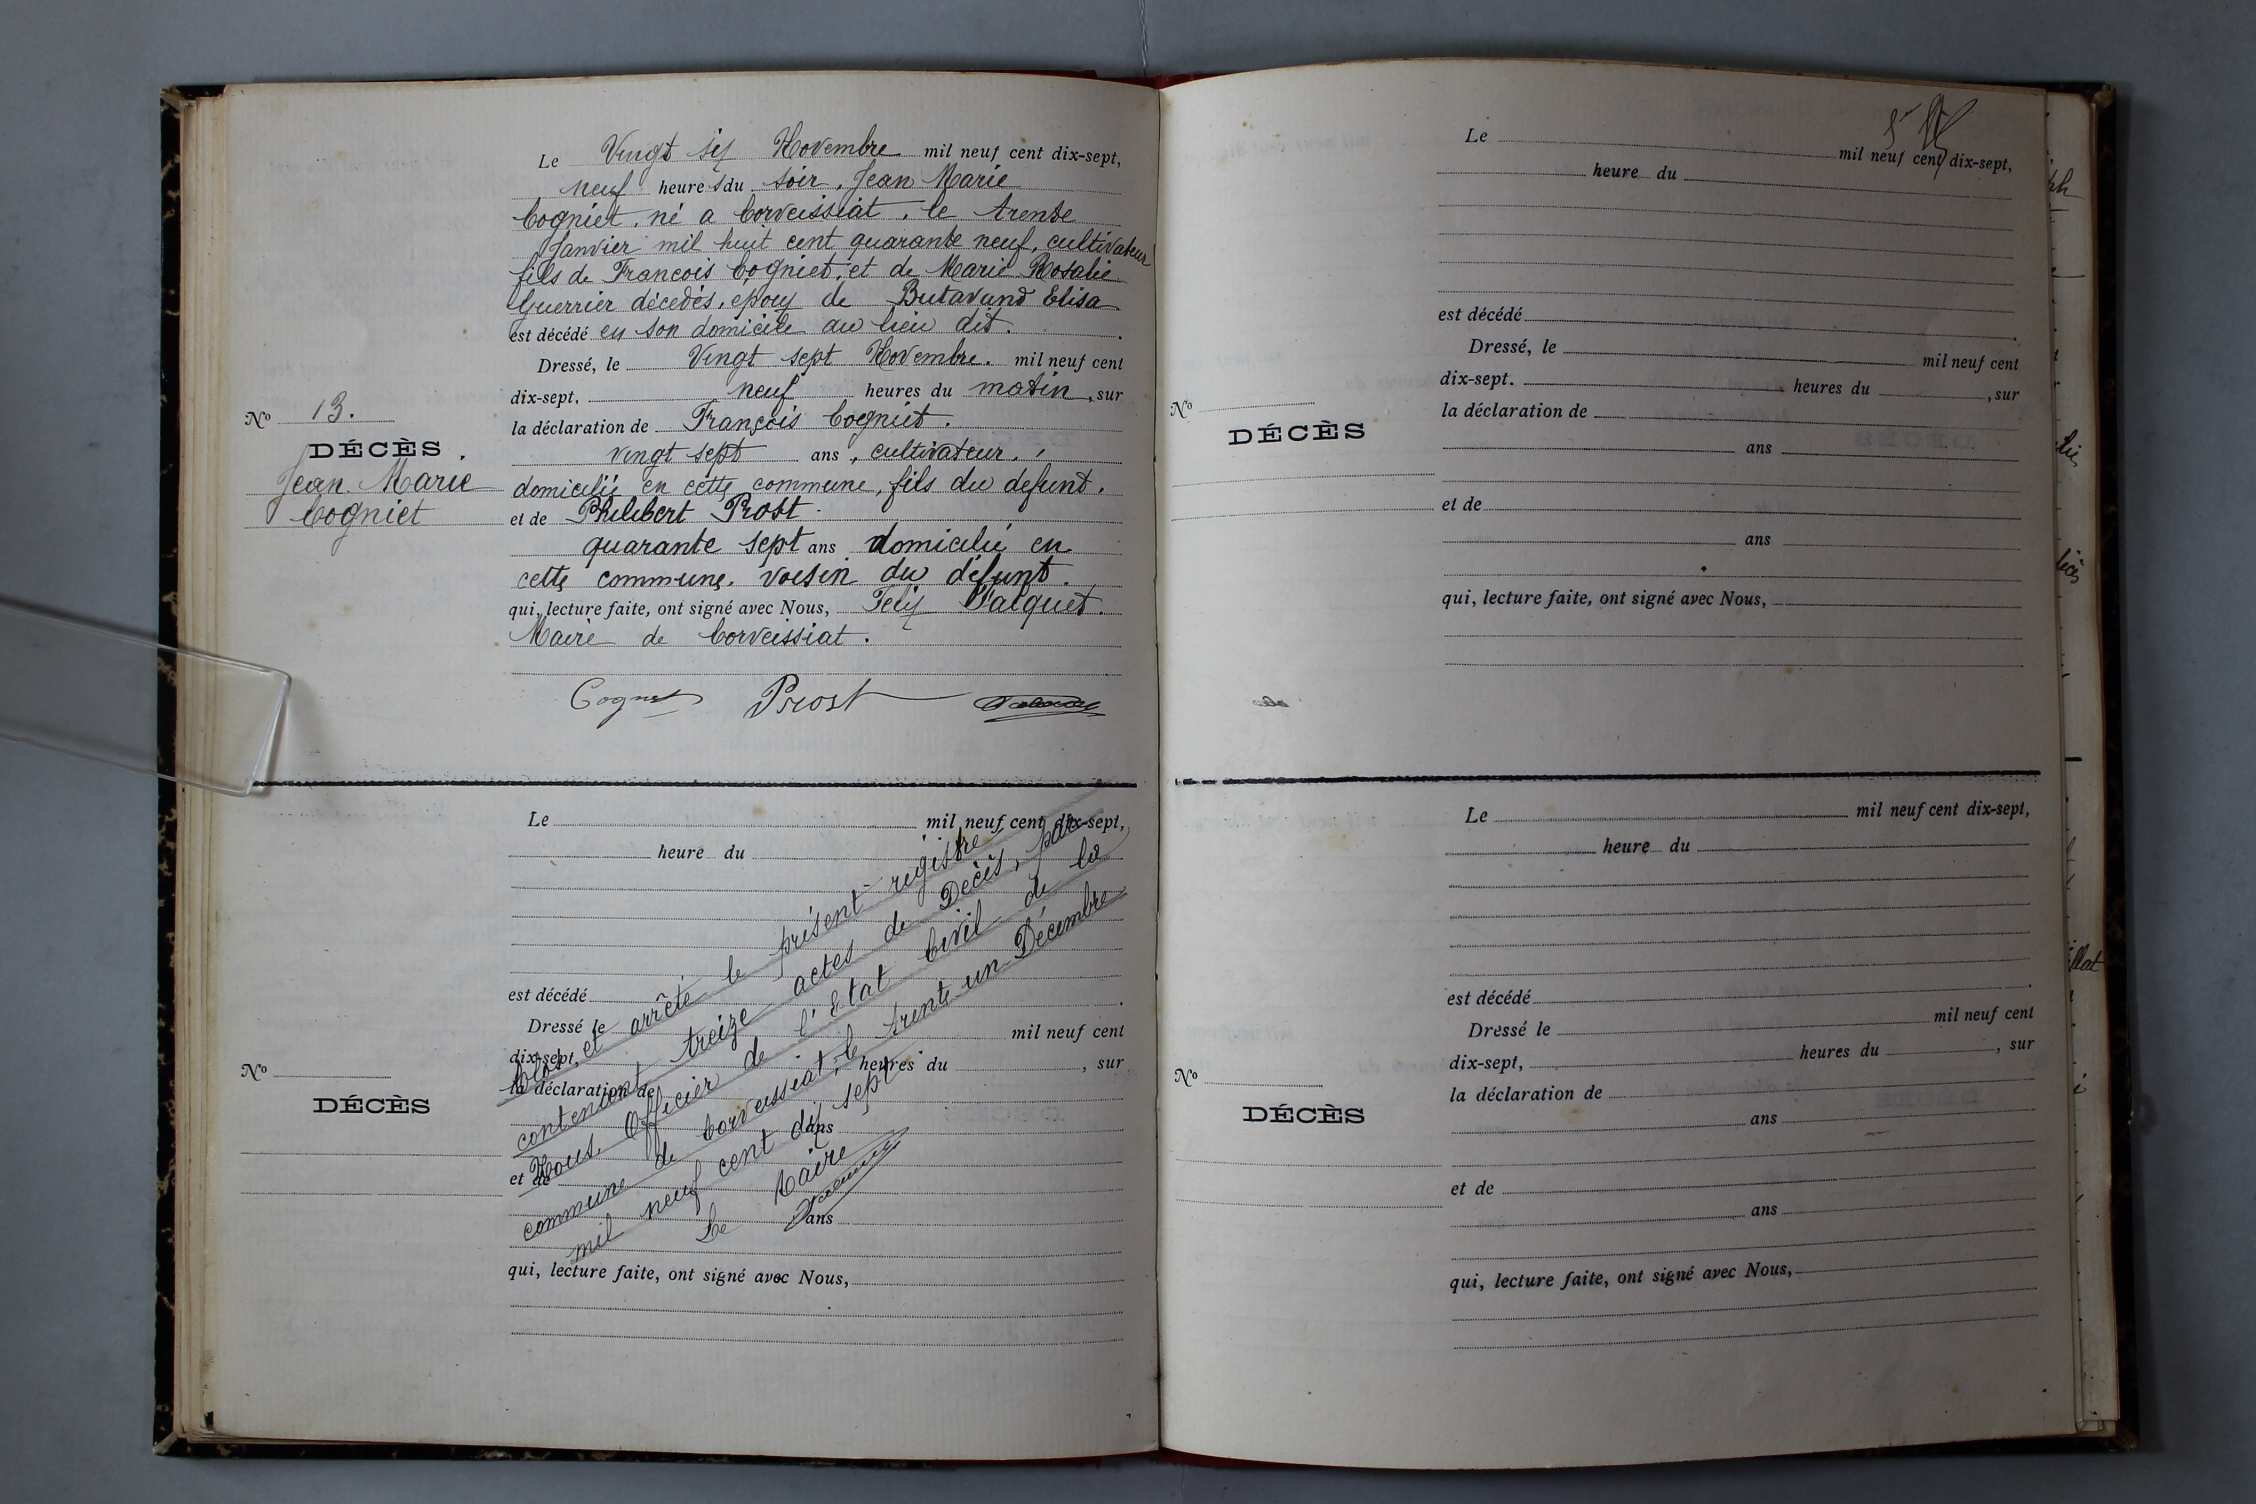 Le Vingt six Novembre mil neuf cent dix-sept,
neuf heures du soir, Jean Marie
Cogniet, né a Corveissiat, le trente
Janvier mil huit cent quarante neuf, cultivateur
fils de Francois Cogniet, et de Marie Rosalie
Guerrier décedés, époux de Butavand Elisa
est décédé en son domicile au lieu dit.
Dressé, le Vingt sept Novembre. mil neuf cent
dix-sept. neuf heures du matin, sur
la déclaration de François Cogniet.
vingt sept ans, cultivateur,
domicilié en cette commune, fils du defunt.
et de Philibert Prost.
quarante sept ans domicilié en
cette commune. voisin du défunt.
qui, lecture faite, ont signé avec Nous, Felix Palquet.
Maire de Corveissiat.
Cogniet Prost
No 13.
DÉCÈS
Jean Marie
Cogniet
Le mil neuf cent dix-sept,
heure du
est décédé
Dressé le mil neuf cent
dix-sept, heures du , sur
la déclaration de
ans
et de
ans
qui, lecture faite, ont signé avec Nous,
No
DÉCÈS
Clos et arrêté le présent registre
contenant treize actes de Décès, par
Nous Officier de l'Etat Civil de la
commune de Corveissiat, le trente un Décembre
mil neuf cent dix sept
Le Maire
Le mil neuf cent dix-sept,
heure du
est décédé
Dressé, le mil neuf cent
dix-sept. heures du , sur
la déclaration de
ans
et de
ans
qui, lecture faite, ont signé avec Nous,
No
DÉCÈS
Le mil neuf cent dix-sept,
heure du
est décédé
Dressé le mil neuf cent
dix-sept, heures du , sur
la déclaration de
ans
et de
ans
qui, lecture faite, ont signé avec Nous,
No
DÉCÈS